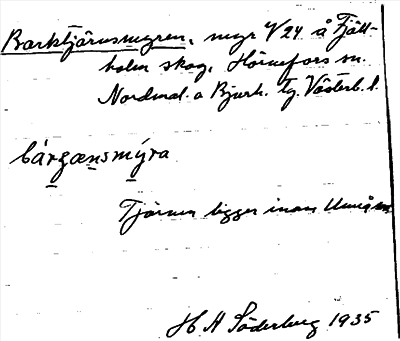 Barktjärnsmyren, myr 4/24 å Fjäll-
holm skog, Hörnefors sn.
Nordmal. o Bjurh. tg. Västerb. l.
bárgænsmýra
Tjärnen ligger inom Umeå sn
H A Söderberg 1935